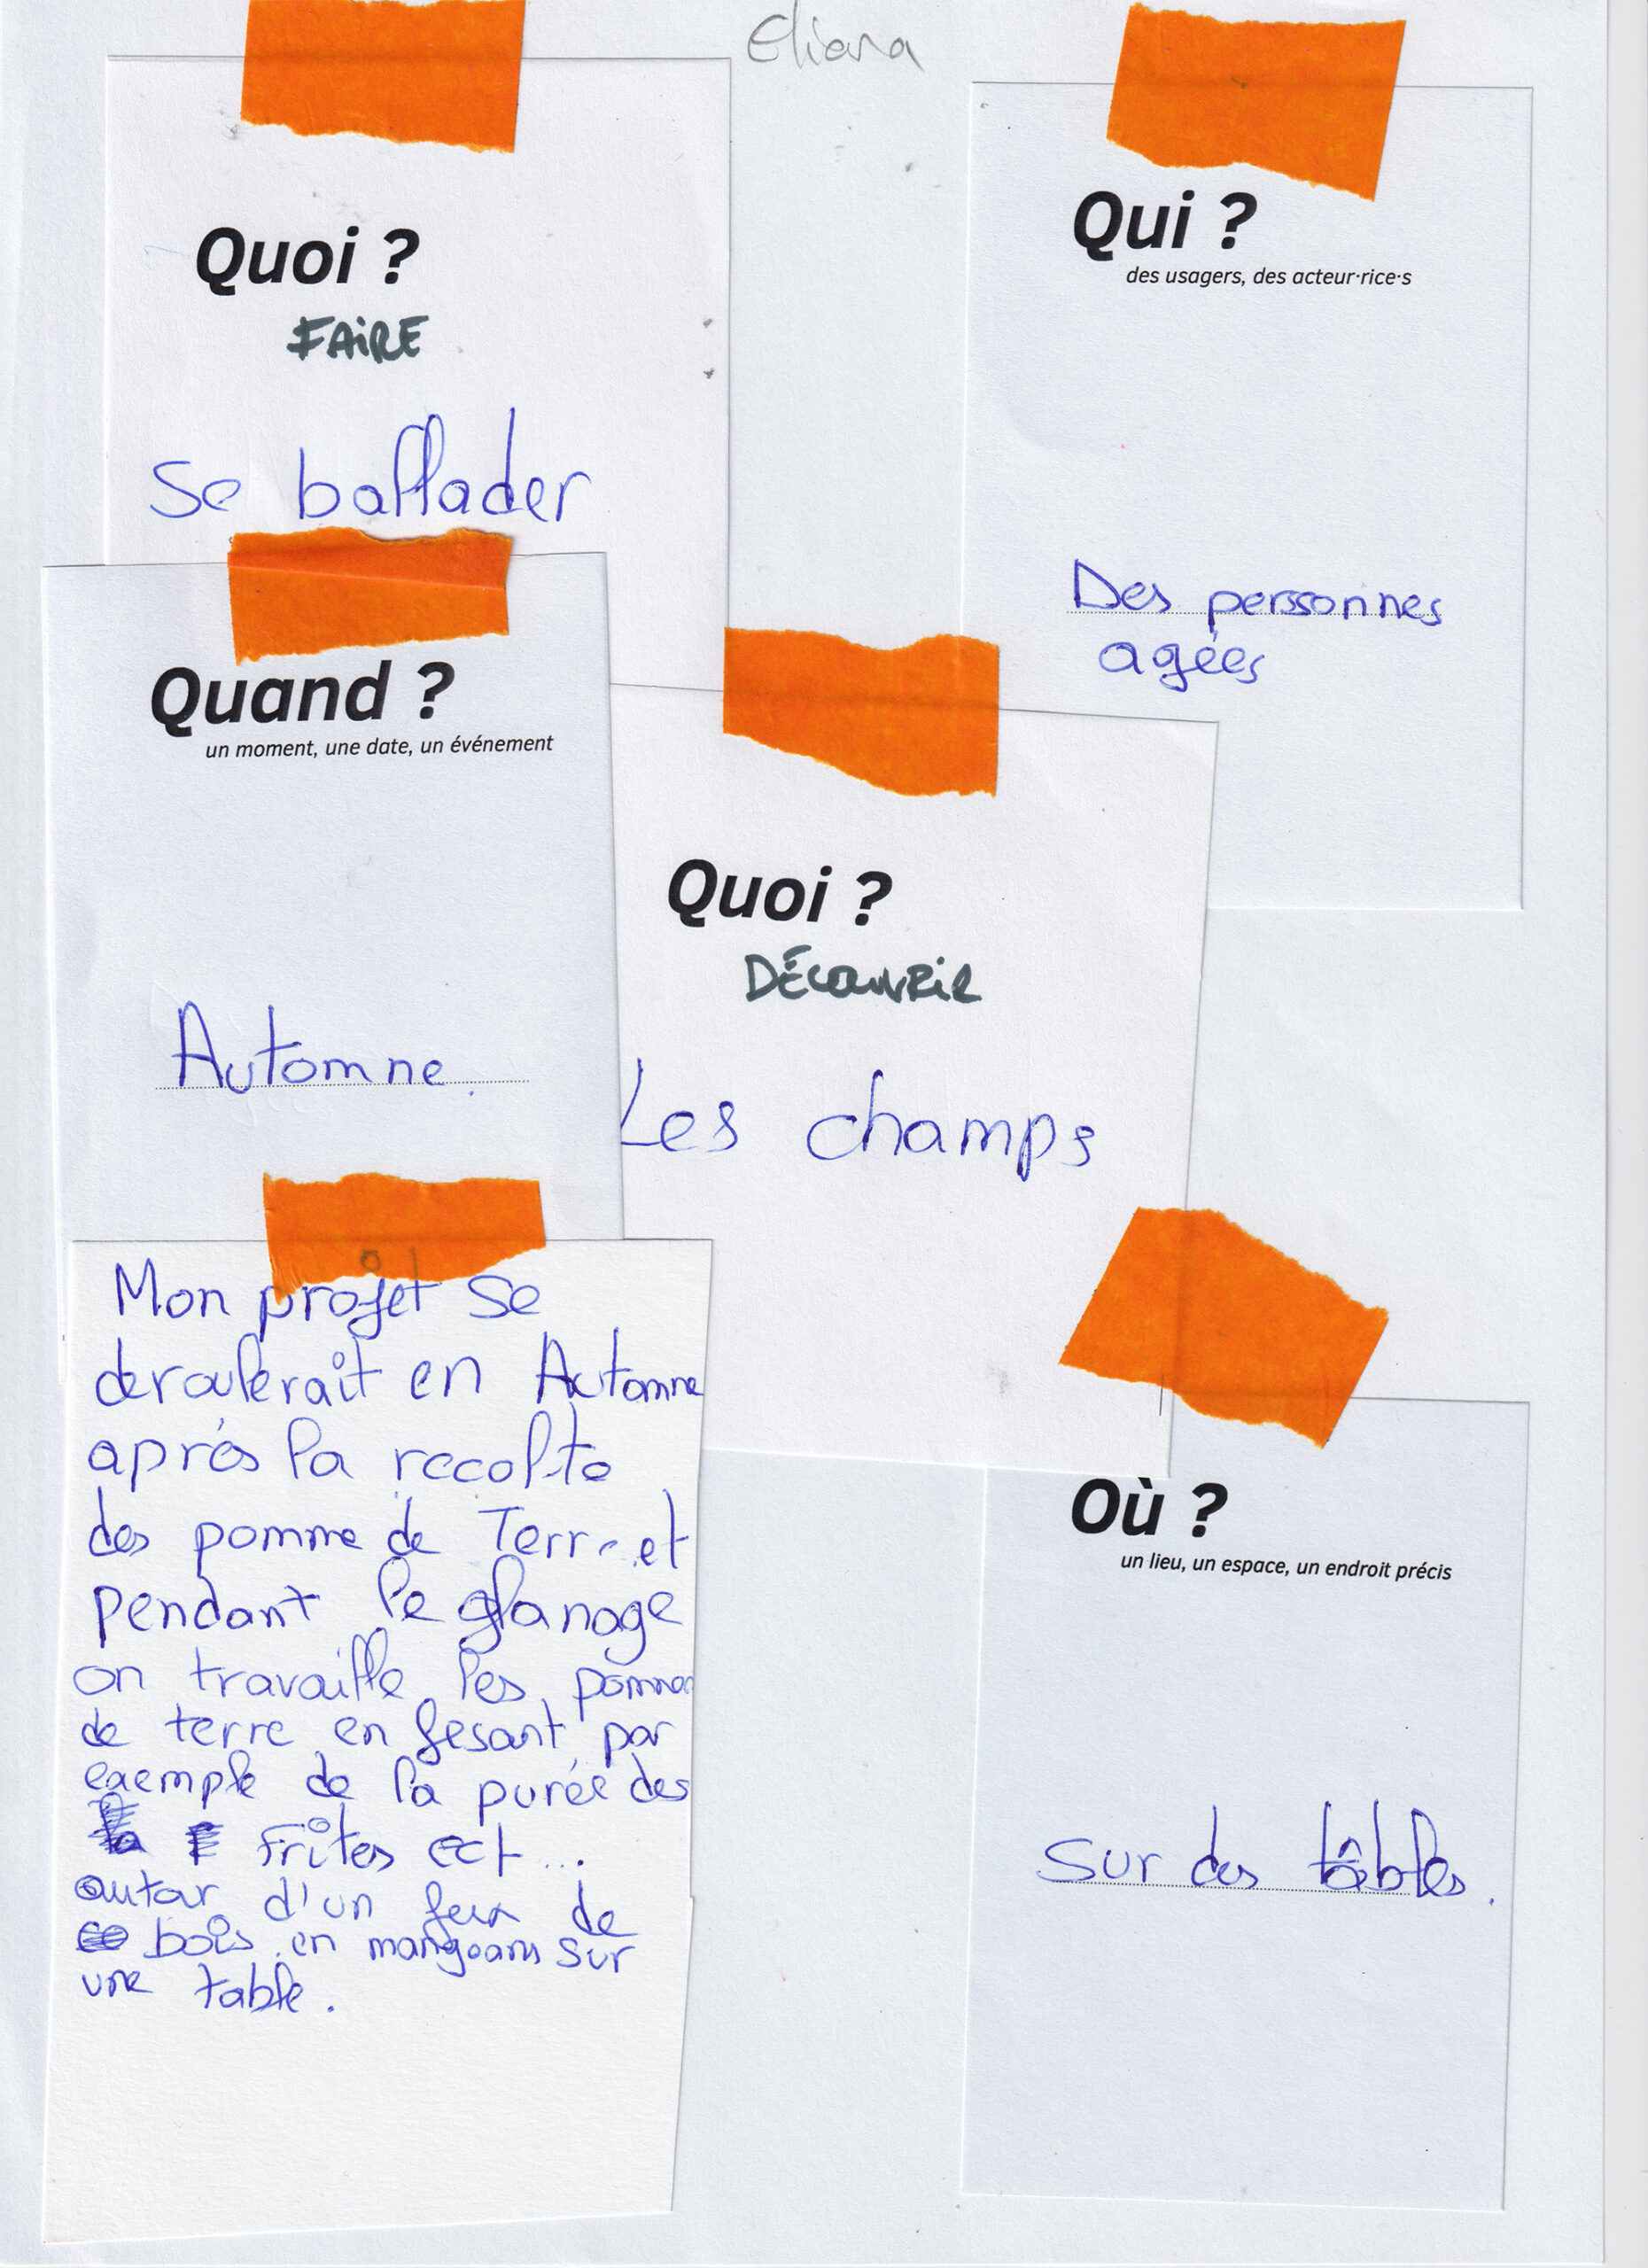 Eliana
Quoi ?
FAIRE
Se ballader
Qui ?
des usagers, des acteur·rice·s
Des perssonnes
agées
Quand ?
un moment, une date, un événement
Automne.
Quoi ?
DÉCOUVRIR
Les champs
Mon projet se
deroulerait en Automne
aprés la recolte
des pomme de Terre et
pendant le glanage
on travaille les pommes
de terre en fesant par
exemple de la purée des
frites ect...
autour d'un feux de
bois en mangeans sur
une table.
Où ?
un lieu, un espace, un endroit précis
Sur des tâbles.